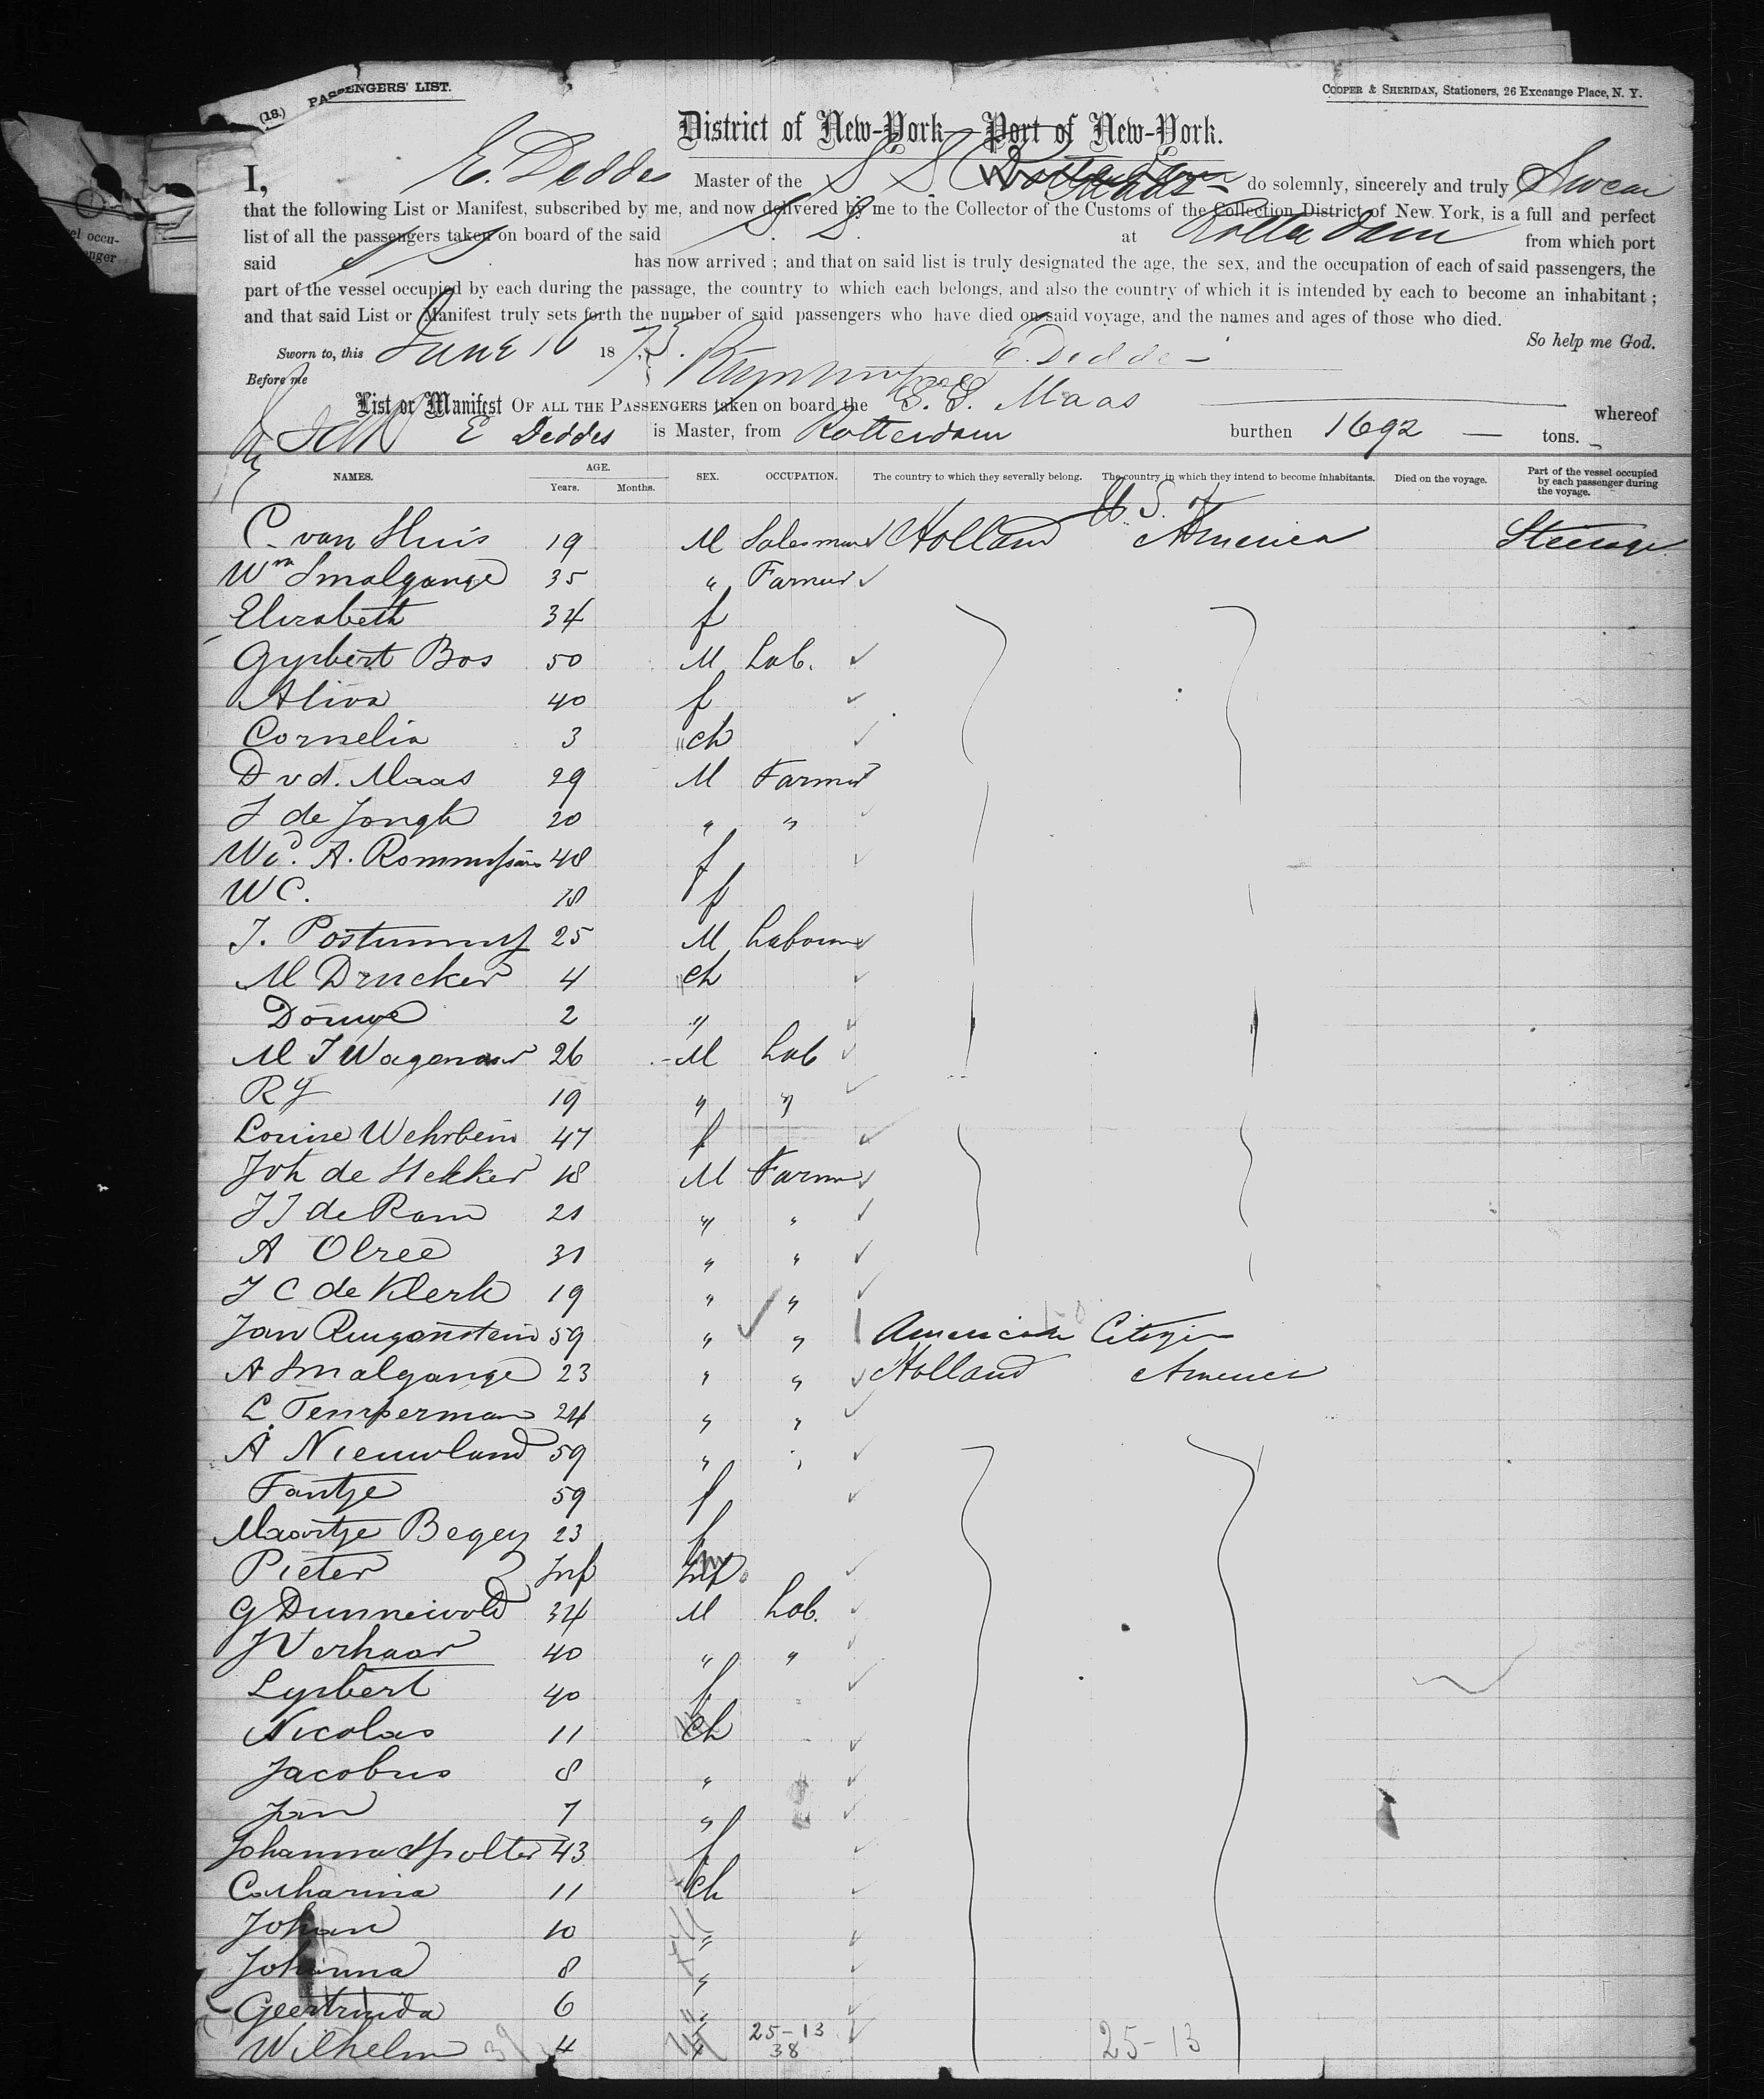 (18.) PASSENGERS' LIST.
COOPER & SHERIDAN, Stationers, 26 Exchange Place, N. Y.
District of New-York—Port of New-York.
I, E. Deddes Master of the S S Maas do solemnly, sincerely and truly Swear
that the following List or Manifest, subscribed by me, and now delivered by me to the Collector of the Customs of the Collection District of New York, is a full and perfect
list of all the passengers taken on board of the said S. S. at Rotterdam from which port
said S S has now arrived ; and that on said list is truly designated the age, the sex, and the occupation of each of said passengers, the
part of the vessel occupied by each during the passage, the country to which each belongs, and also the country of which it is intended by each to become an inhabitant ;
and that said List or Manifest truly sets forth the number of said passengers who have died on said voyage, and the names and ages of those who died.
So help me God.
Sworn to, this June 16 1873. E. Deddes
Before me
List or Manifest OF ALL THE PASSENGERS taken on board the S. S. Maas whereof
E Deddes is Master, from Rotterdam burthen 1692 tons.
NAMES. AGE. Years. Months. SEX. OCCUPATION. The country to which they severally belong. The country in which they intend to become inhabitants. Died on the voyage. Part of the vessel occupied by each passenger during the voyage.
C. van Sluis 19 M Salesman Holland U. S. of America Steerage
Wm Smalgange 35 " Farmer
Elizabeth 34 f
Gysbert Bos 50 M Lab.
Aliva 40 f
Cornelia 3 " ch
D v d. Maas 29 M Farmer
J de Jongh 20 " "
Wd. A. 48 f
W C. 18 f
J. Postumus 25 M Labourer
M Drucker 4 ch
Douwe 2 "
M J Wagenaar 26 M Lab
R J 19 " "
Louise Wehrbein 47 f
Joh de Hekker 18 M Farmer
J J de Ram 21 " "
A Olree 31 " "
J C de Klerk 19 " "
Jan Ruugenstein 59 " " American Citizen
A Smalgange 23 " " Holland America
L. Temperman 24 " "
A Nieuwland 59 " "
Fantje 59 f
Maartje Begey 23 f
Pieter Inf Inf
G Dunnewold 34 M Lab.
J Verhaar 40 " "
Lysbert 40 f
Nicolas 11 ch
Jacobus 8 "
Jan 7 "
Johanna Spolter 43 f
Catharina 11 ch
Johan 10 "
Johanna 8 "
Geertruida 6 "
Wilhelm 39 4 " 25-13 25-13
38